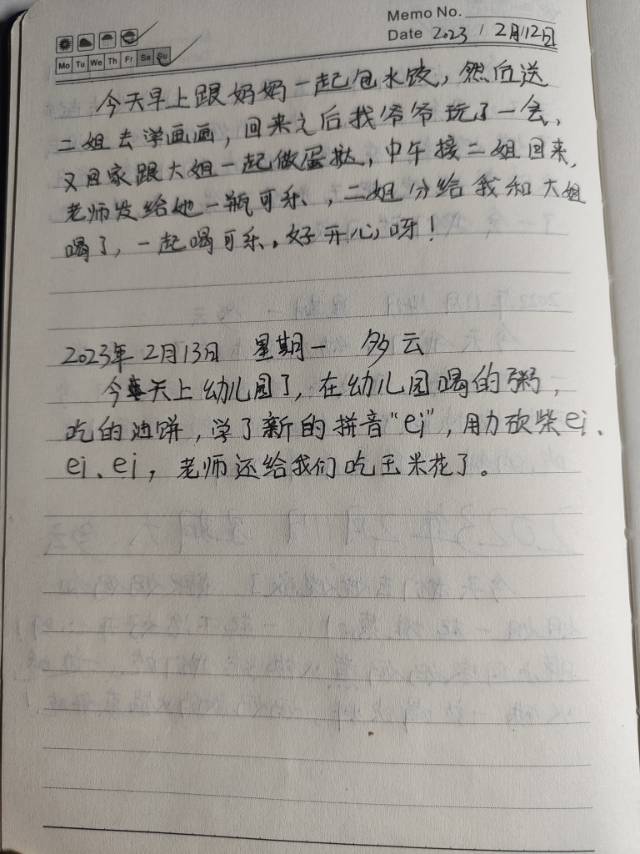 Memo No.
Date 2023 / 2月12日
Mo Tu We Th Fr Sa Su
今天早上跟妈妈一起包水饺，然后送
二姐去学画画，回来之后我爷爷玩了一会，
又回家跟大姐一起做蛋挞，中午接二姐回来，
老师发给她一瓶可乐，二姐分给我和大姐
喝了，一起喝可乐。好开心呀！
2023年2月13日 星期一 多云
今天上幼儿园了，在幼儿园喝的粥，
吃的油饼，学了新的拼音“ei”，用力砍柴ei、
ei、ei，老师还给我们吃玉米花了。